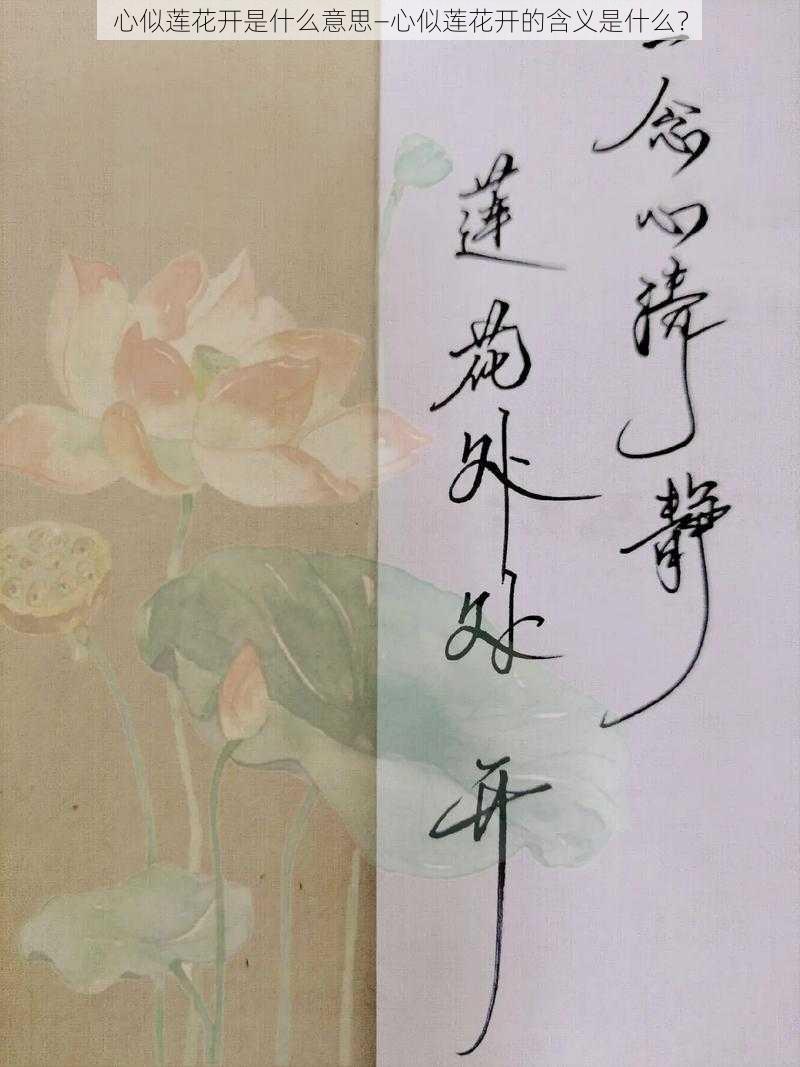 心似莲花开是什么意思–心似莲花开的含义是什么？
一念心清静
莲花处处开